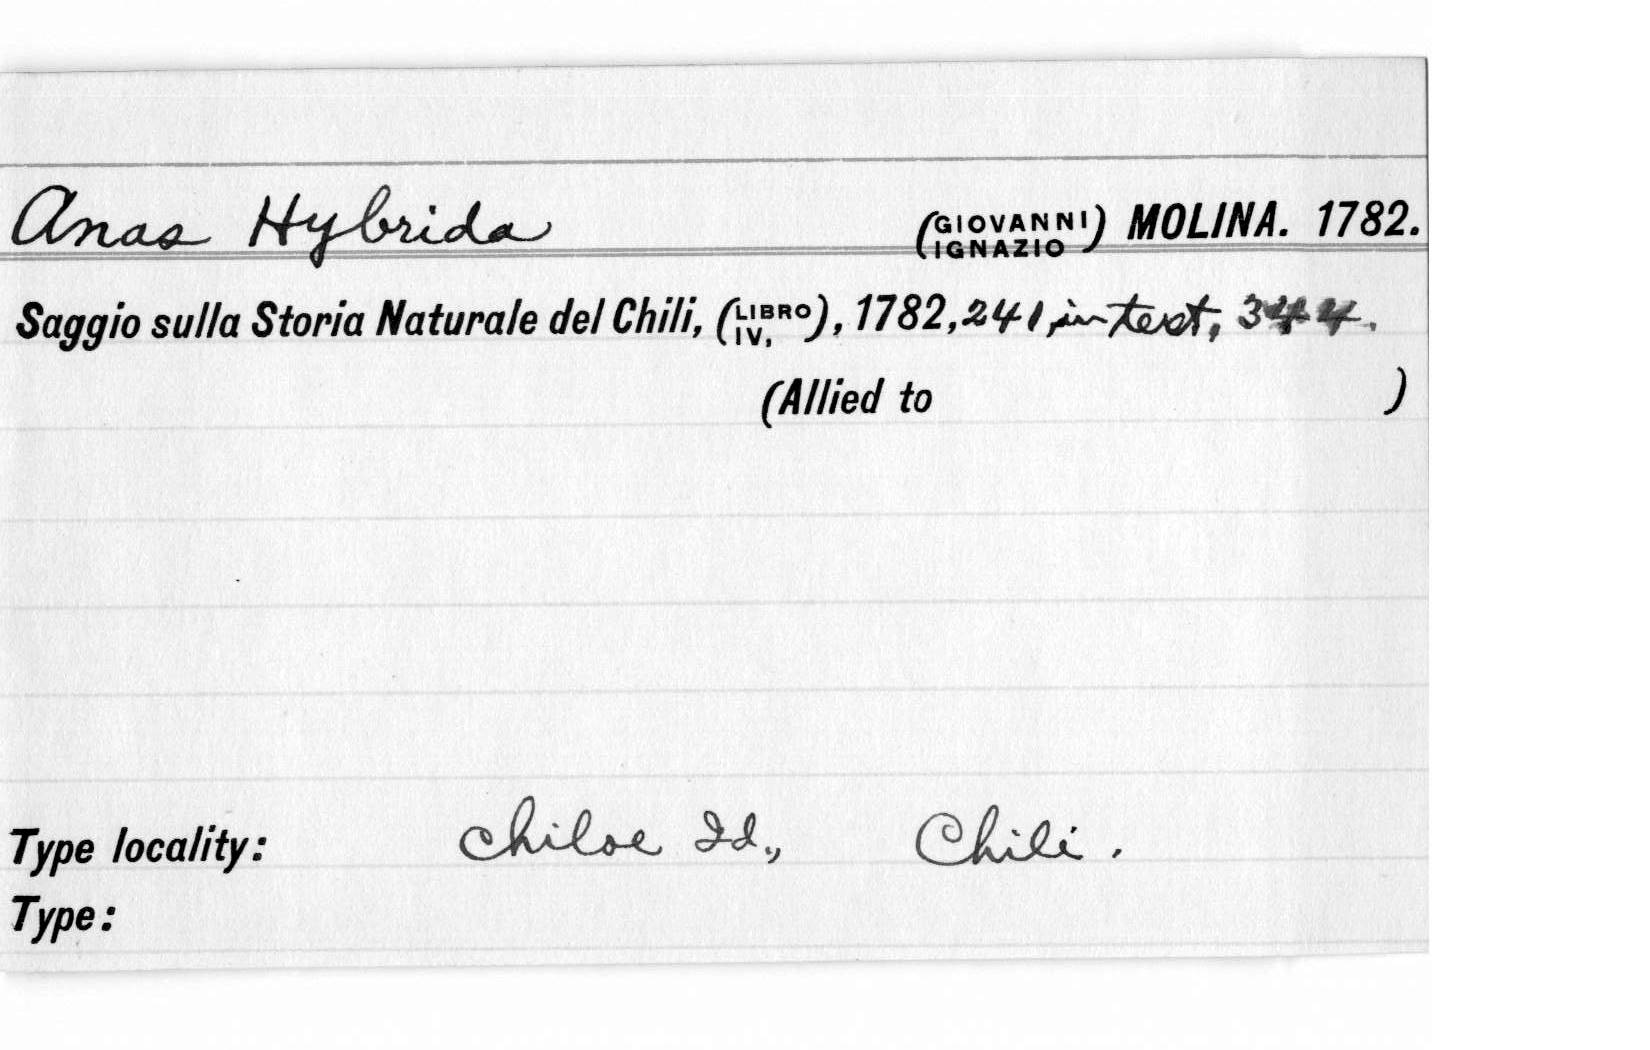 Anas Hybrida (GIOVANNI IGNAZIO) MOLINA. 1782.
Saggio sulla Storia Naturale del Chili, (LIBRO IV,), 1782, 241, in text, 344.
(Allied to )
Type locality: Chiloe Id., Chili.
Type: